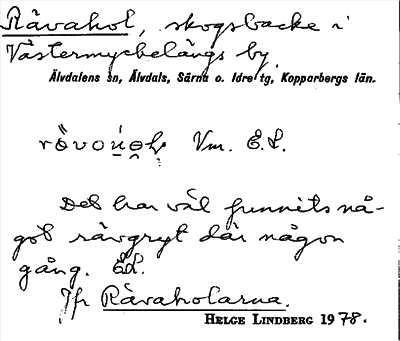 Råvahol, skogsbacke i
Västermyckelängs by,
Älvdalens sn, Älvdals, Särna o. Idre tg, Kopparbergs län.
Vm. E.L.
Det har väl funnits nå-
got rävgryt där någon
gång. E.L.
Jfr Råvaholarna.
HELGE LINDBERG 1978.